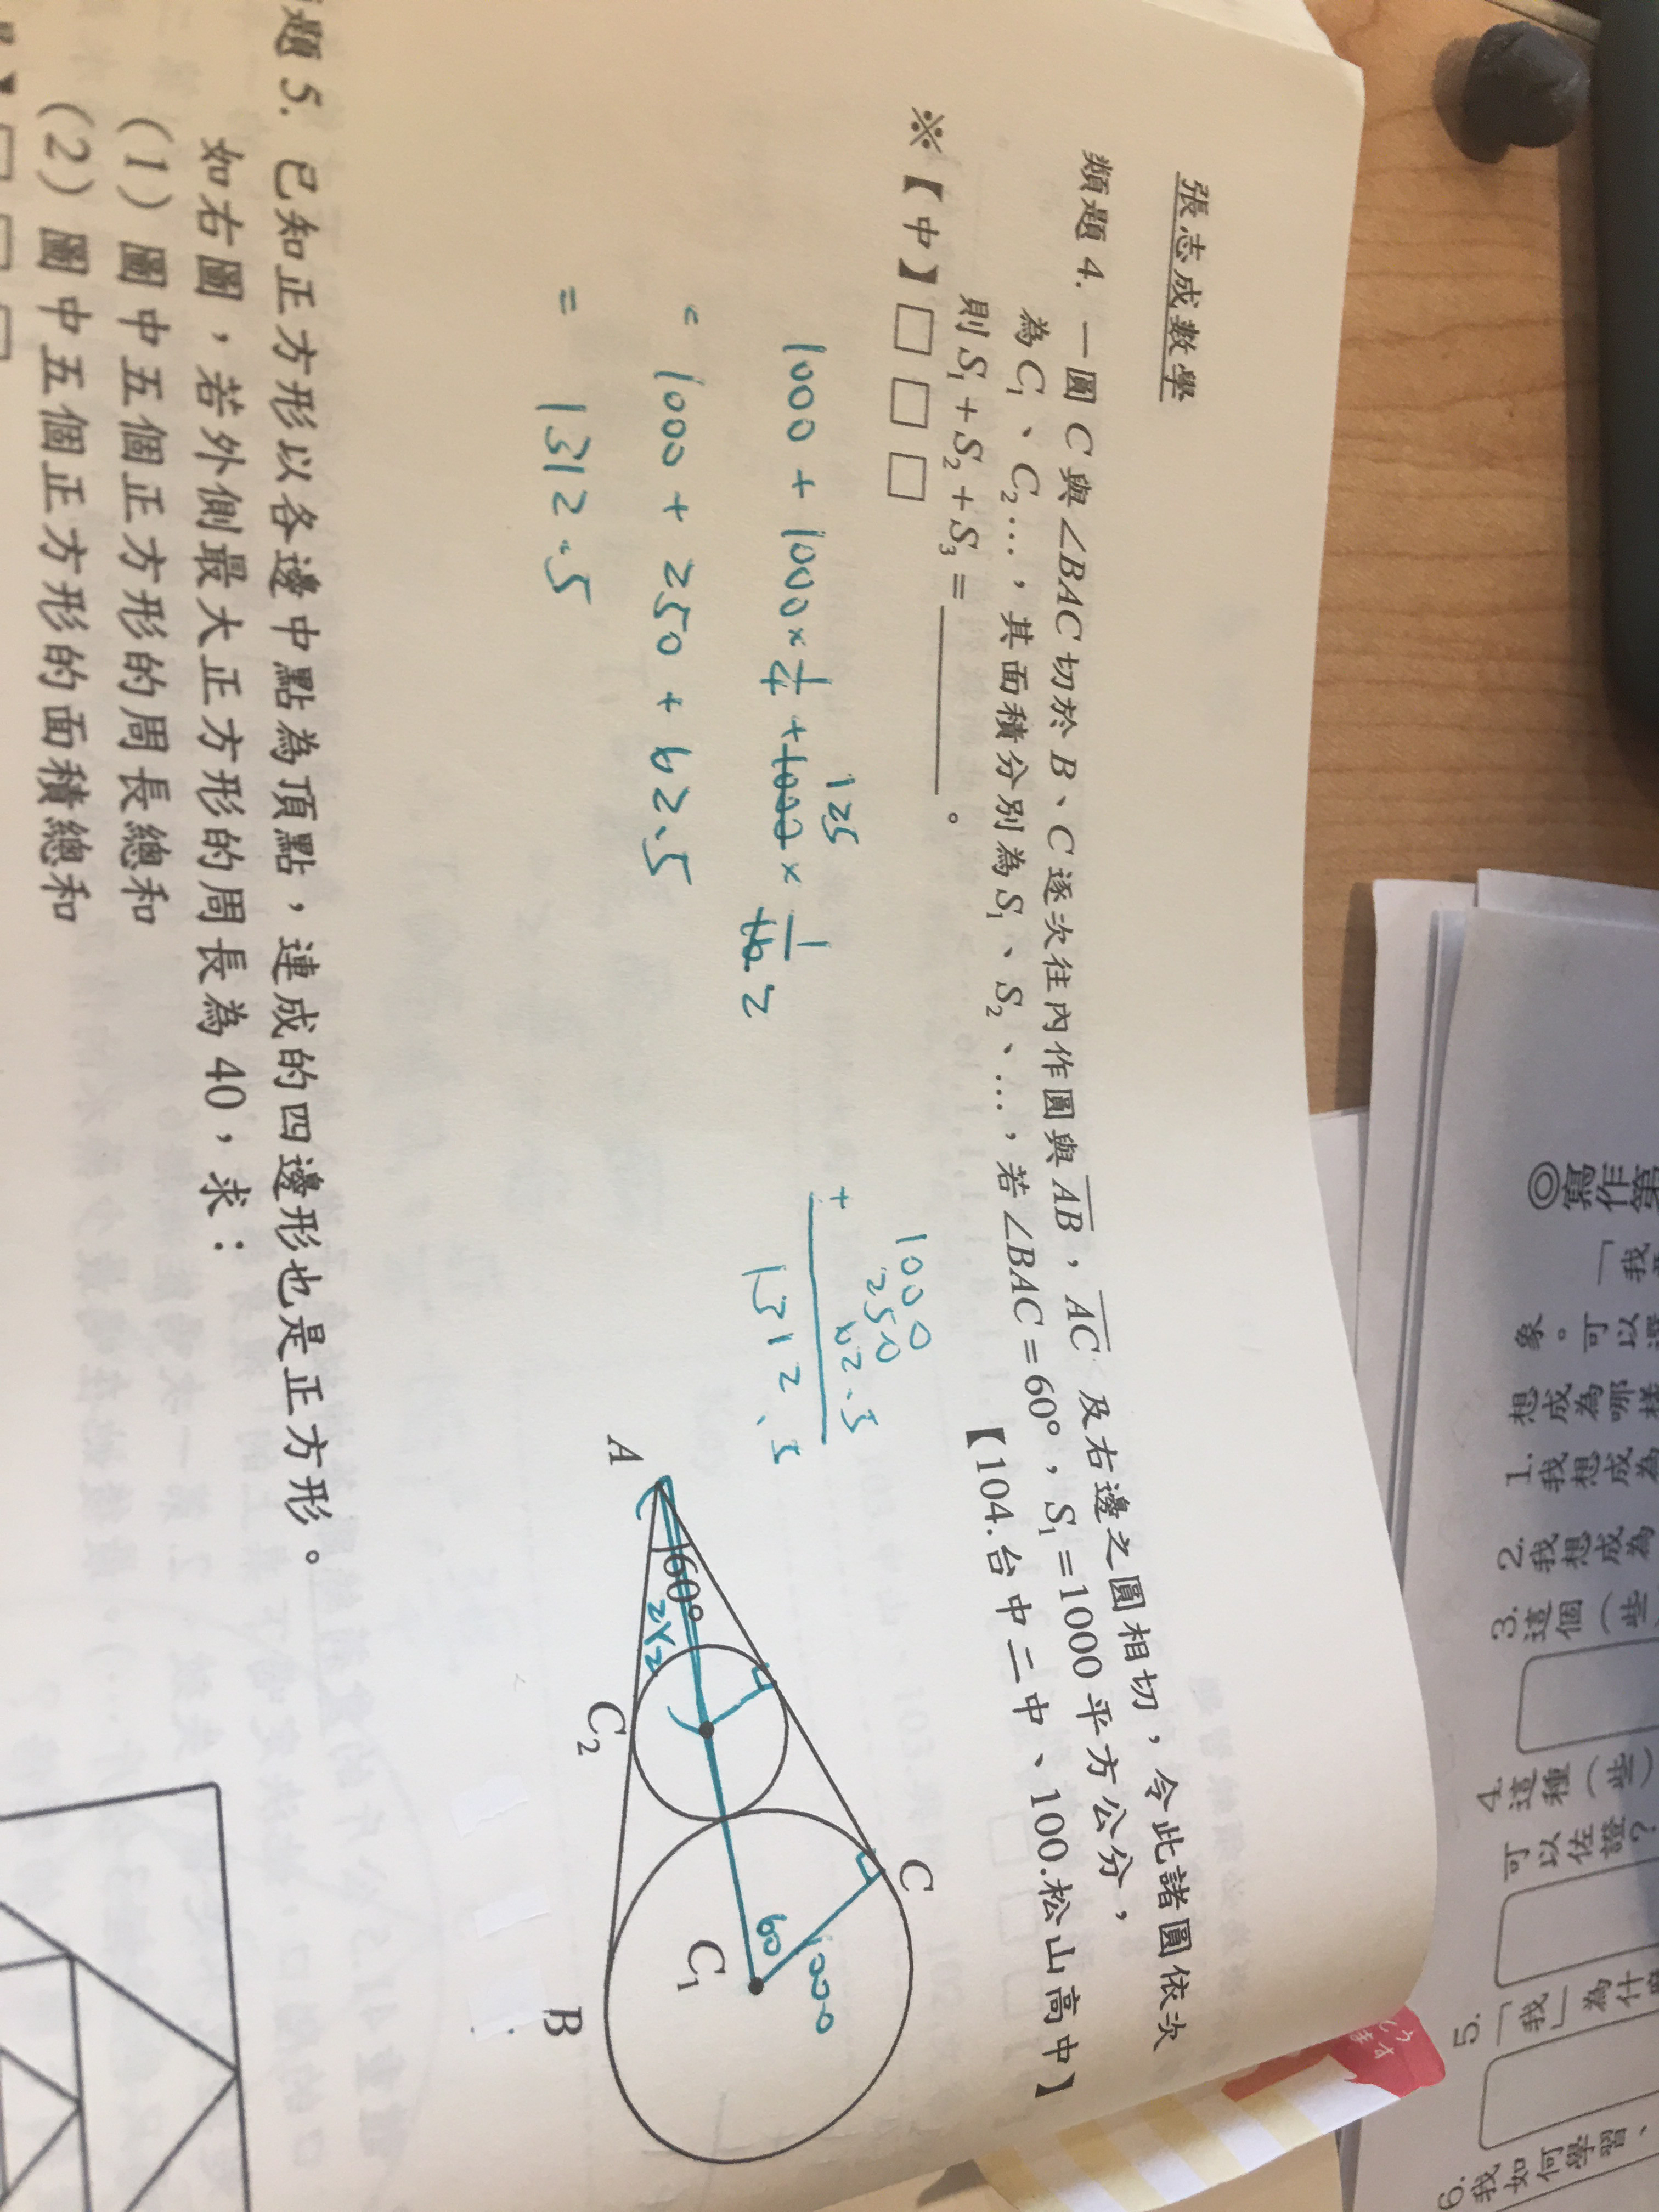 張志成數學
類題 4. 一圓 C 與 ∠BAC 切於 B、C 逐次往內作圓與 AB，AC 及右邊之圓相切，令此諸圓依次
為 C₁、C₂…，其面積分別為 S₁、S₂、…，若 ∠BAC=60°，S₁=1000 平方公分，
則 S₁+S₂+S₃= ________ 。
【104.台中二中、100.松山高中】
※【中】□□□
1000 + 1000 × 1/4 + 1000 × 1/16
125
2
= 1000 + 250 + 62.5
= 1312.5
1000
250
62.5
+
1312.5
A
60°
C₂
C₁
60
1000
C
B
題 5. 已知正方形以各邊中點為頂點，連成的四邊形也是正方形。
如右圖，若外側最大正方形的周長為 40，求：
(1) 圖中五個正方形的周長總和
(2) 圖中五個正方形的面積總和
◎寫作第
「我
象。可以
想成為哪
1. 我想成為
2. 我想成為
3. 這個（些
4. 這種（些）
可以佐證？
5. 「我」為什
6. 我如何學習、